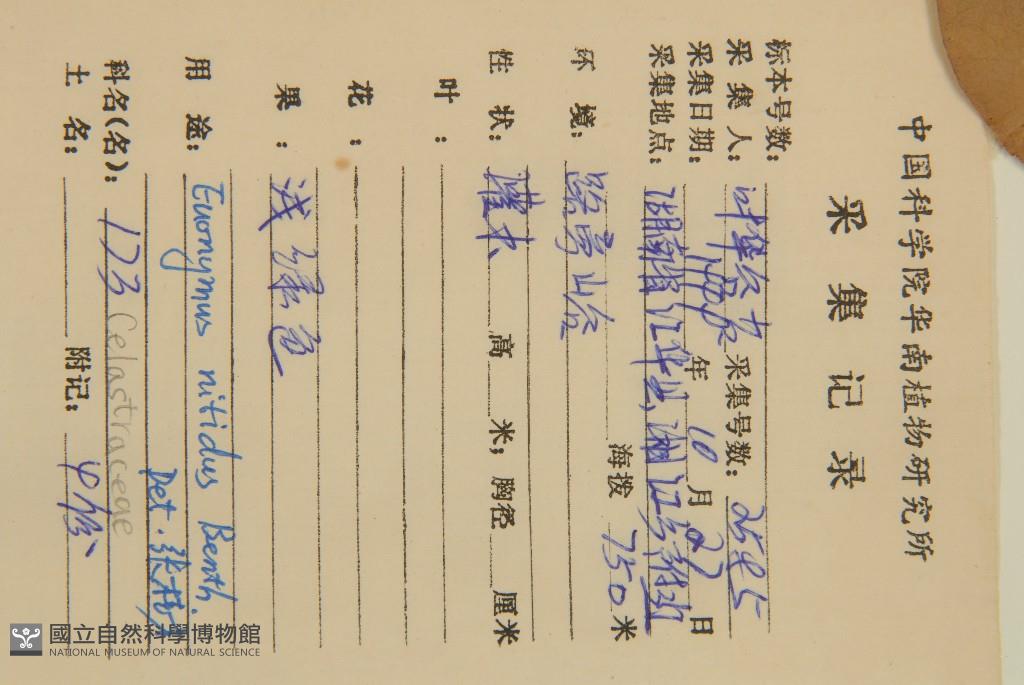 中国科学院华南植物研究所
采集记录
标本号数:
采集人: 叶华谷 采集号数: 2545
采集日期: 年 10 月 27 日
采集地点: 湖南省江华县,湘江乡
环境: 山谷 海拨 750 米
性状: 灌木 高 米; 胸径 厘米
叶:
花:
果: 浅绿色
用途:
Euonymus nitidus Benth.
Det. 张
科名(名): 173 Celastraceae
土名: 附记:
國立自然科學博物館
NATIONAL MUSEUM OF NATURAL SCIENCE